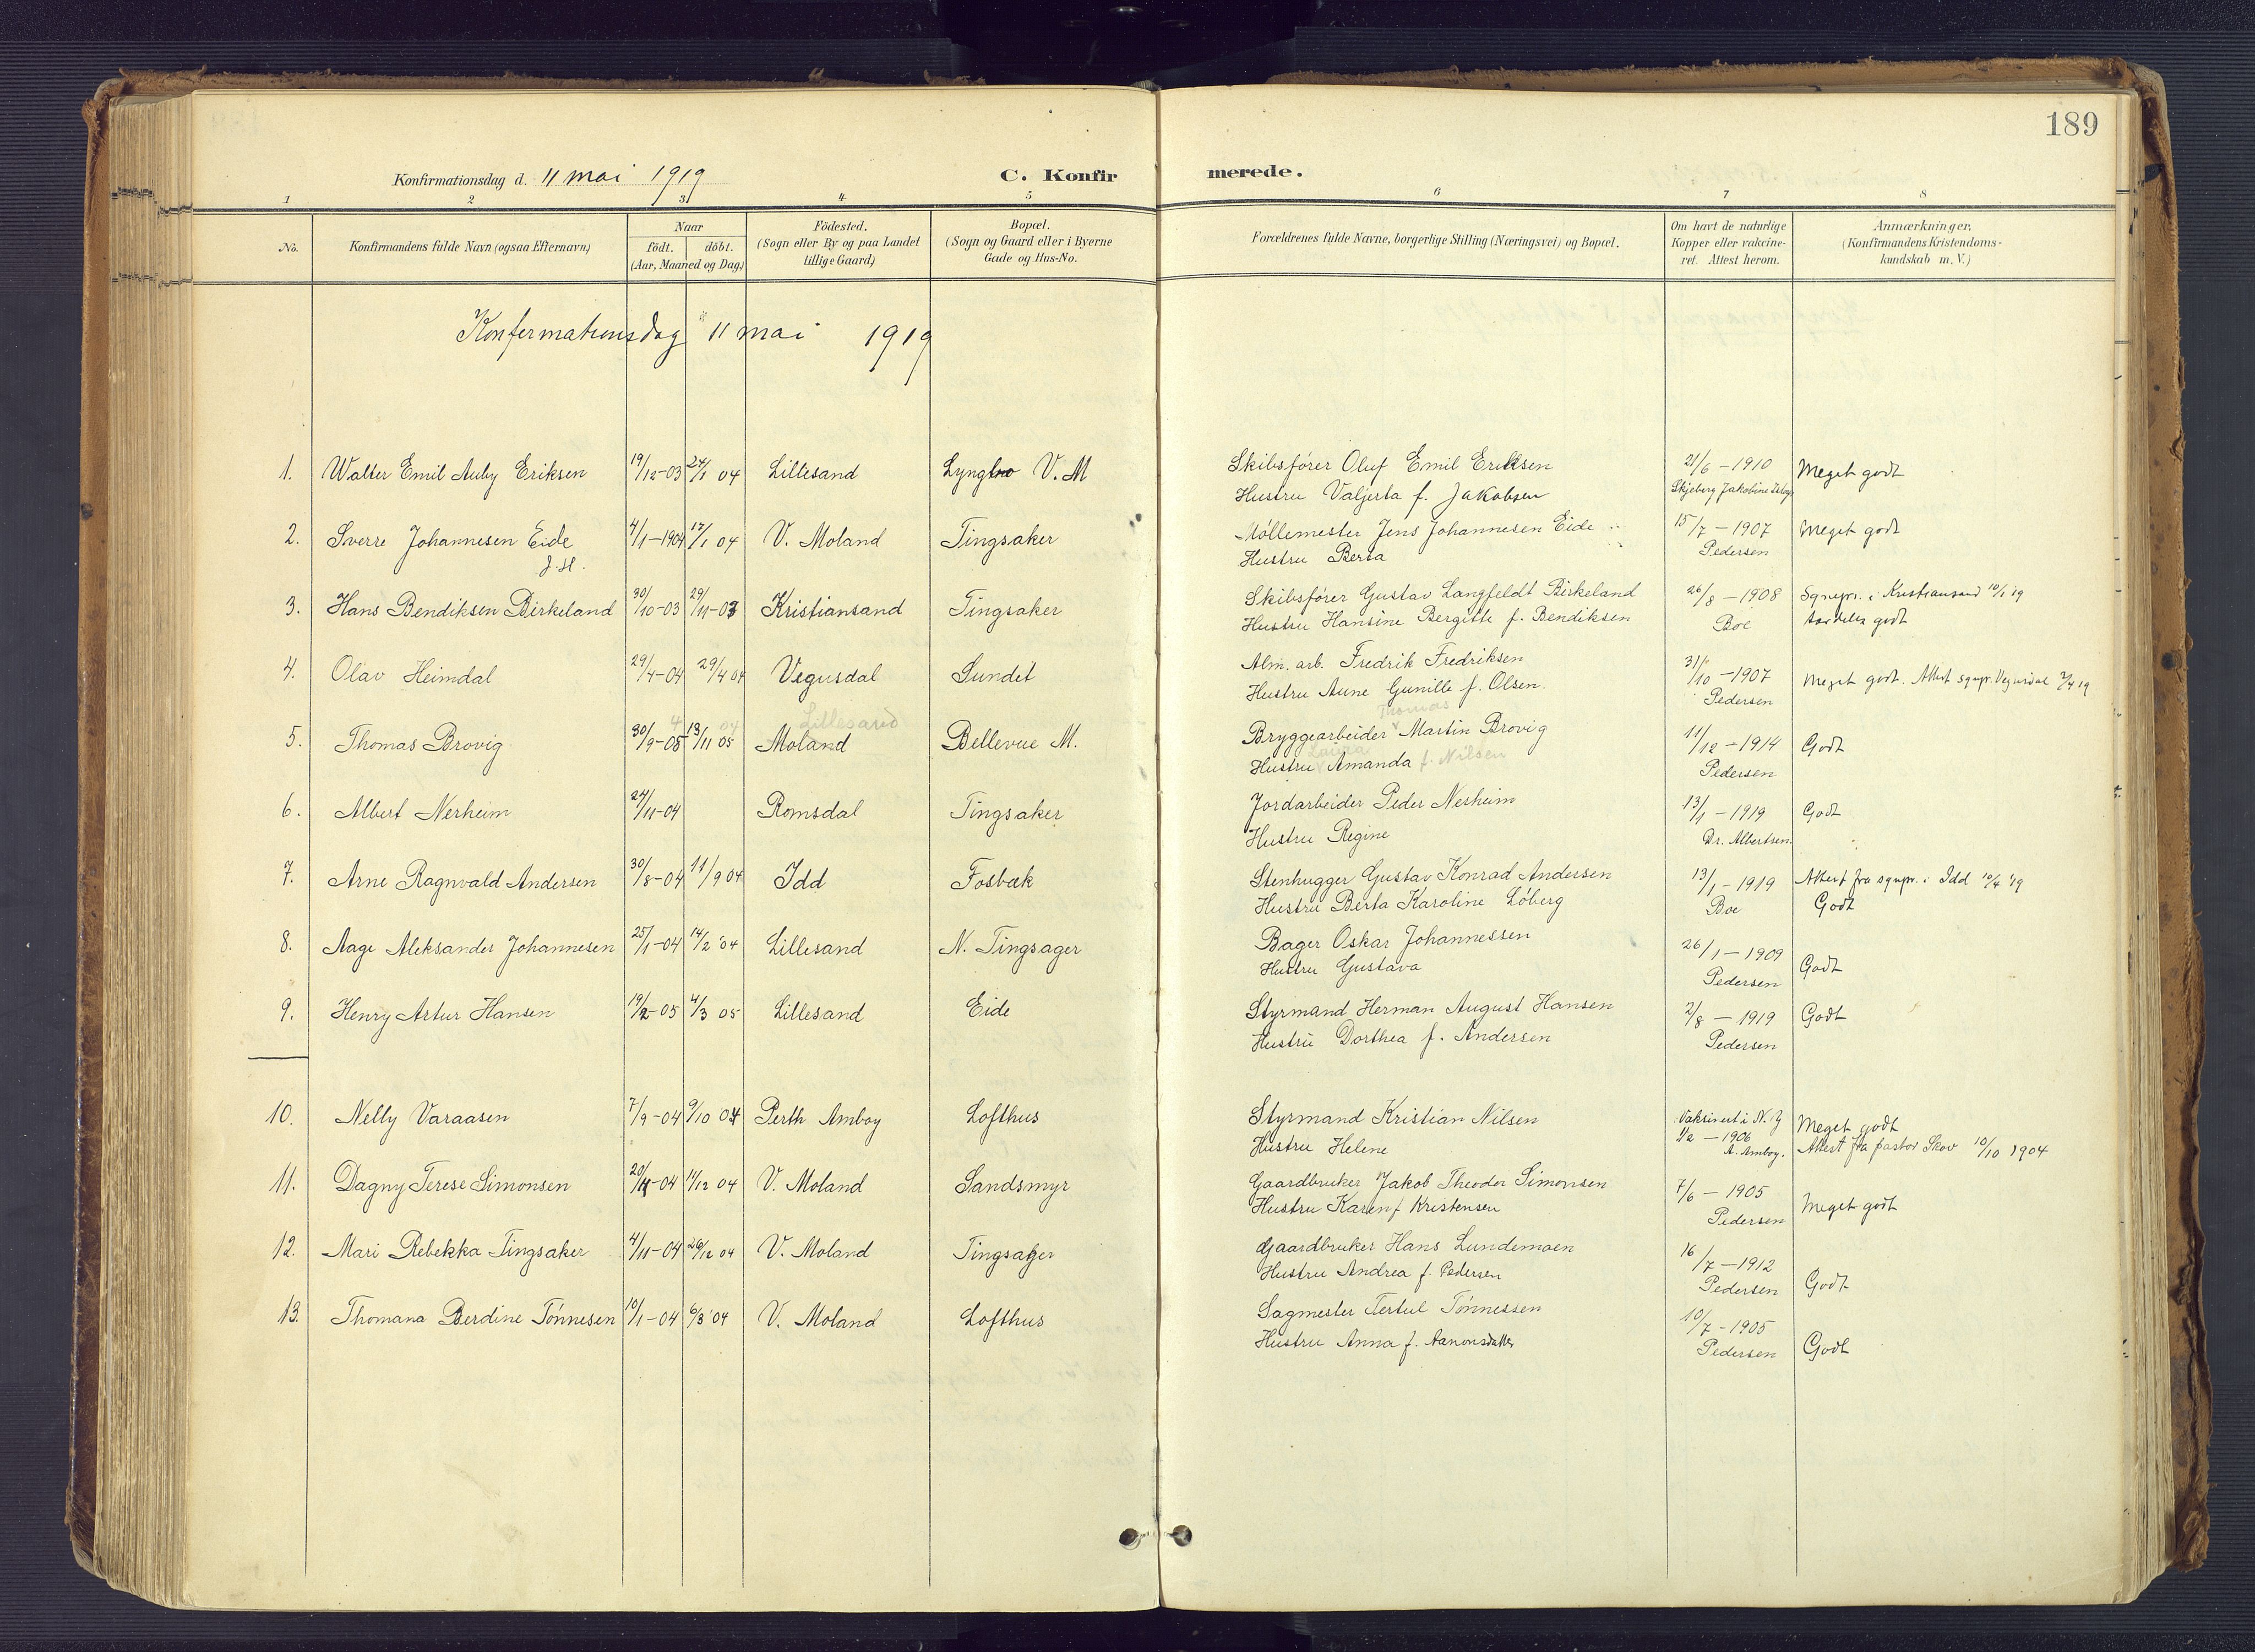 189
Konfirmationsdag d. 11 mai 1919
C. Konfirmerede.
1 2 3 4 5 6 7 8
No. Konfirmandens fulde Navn (ogsaa Efternavn) Naar født. døbt. (Aar, Maaned og Dag) Fødested. (Sogn eller By og paa Landet tillige Gaard) Bopæl. (Sogn og Gaard eller i Byerne Gade og Hus-No. Forældrenes fulde Navne, borgerlige Stilling (Næringsvei) og Bopæl. Om havt de naturlige Kopper eller vakcineret. Attest herom. Anmærkninger. (Konfirmandens Kristendomskundskab m. V.)
Konfermationsdag 11 mai 1919
1. Walter Emil Auby Eriksen 19/12-03 24/1 04 Lillesand Lyngbro V. M Skibsfører Oluf Emil Eriksen 21/6 - 1910 Meget godt
Hustru Valjerta f. Jakobsen Skjeberg Jakobine
2. Sverre Johannesen Eide 4/1-1904 17/1 04 V. Moland Tingsaker Møllemester Jens Johannesen Eide 15/7 - 1907 Meget godt
J. H. Hustru Berta Pedersen
3. Hans Bendiksen Birkeland 30/10-03 29/11-03 Kristiansand Tingsaker Skibsfører Gustav Langfeldt Birkeland 26/8 - 1908 Sgnepr. i Kristiansand 10/1 19
Hustru Hansine Bergitte f. Bendiksen Boe godt
4. Olav Heimdal 29/4-04 29/4 04 Vegusdal Sundet Alm. arb. Fredrik Fredriksen 31/10 - 1907 Meget godt. Attest sgnpr. Vegusdal 2/4 19
Hustru Aune Gunille f. Olsen. Pedersen
5. Thomas Brovig 30/9-05 4 13/11 05 04 Moland Lillesand Bellevue M. Bryggearbeider Thomas Martin Brovig 11/12 - 1914 Godt
Hustru Laura Amanda f. Nilsen Pedersen
6. Albert Nerheim 24/11-04 Romsdal Tingsaker Jordarbeider Peder Nerheim 13/1 - 1919 Godt
Hustru Regine Dr. Albertsen.
7. Arne Ragnvald Andersen 30/8-04 11/9 04 Idd Fosbæk Stenhugger Gustav Konrad Andersen 13/1 - 1919 Attest fra sgnpr. i Idd 10/4 '19
Hustru Berta Karoline Løberg Boe Godt
8. Aage Aleksander Johannesen 25/1-04 14/2 '04 Lillesand N. Tingsager Bager Oskar Johannessen 26/1 - 1909 Godt
Hustru Gustava Pedersen
9. Henry Artur Hansen 19/2-05 4/3 05 Lillesand Eide Styrmand Herman August Hansen 2/8 - 1919 Godt
Hustru Dorthea f. Andersen Pedersen
10. Nelly Varaasen 7/9-04 9/10 04 Perth Amboy Lofthus Styrmand Kristian Nilsen Vaksinert i N. Y Meget godt
Hustru Helene 1/2 - 1906 A. Amboy. Attest fra pastor Skov 10/10 1904
11. Dagny Terese Simonsen 20/11-04 11/12 04 V. Moland Sandsmyr Gaardbruker Jakob Theodor Simonsen 7/6 - 1905 Meget godt
Hustru Karen f Kristensen Pedersen
12. Mari Rebekka Tingsaker 4/11-04 26/12 04 V. Moland Tingsager Gaardbruker Hans Lundemoen 16/7 - 1912 Godt
Hustru Andrea f. Pedersen Pedersen
13. Thomana Berdine Tønnesen 10/1-04 6/3 '04 V. Moland Lofthus Sagmester Tertul Tønnessen 10/7 - 1905
Hustru Anna f. Aanonsdatter Pedersen Godt